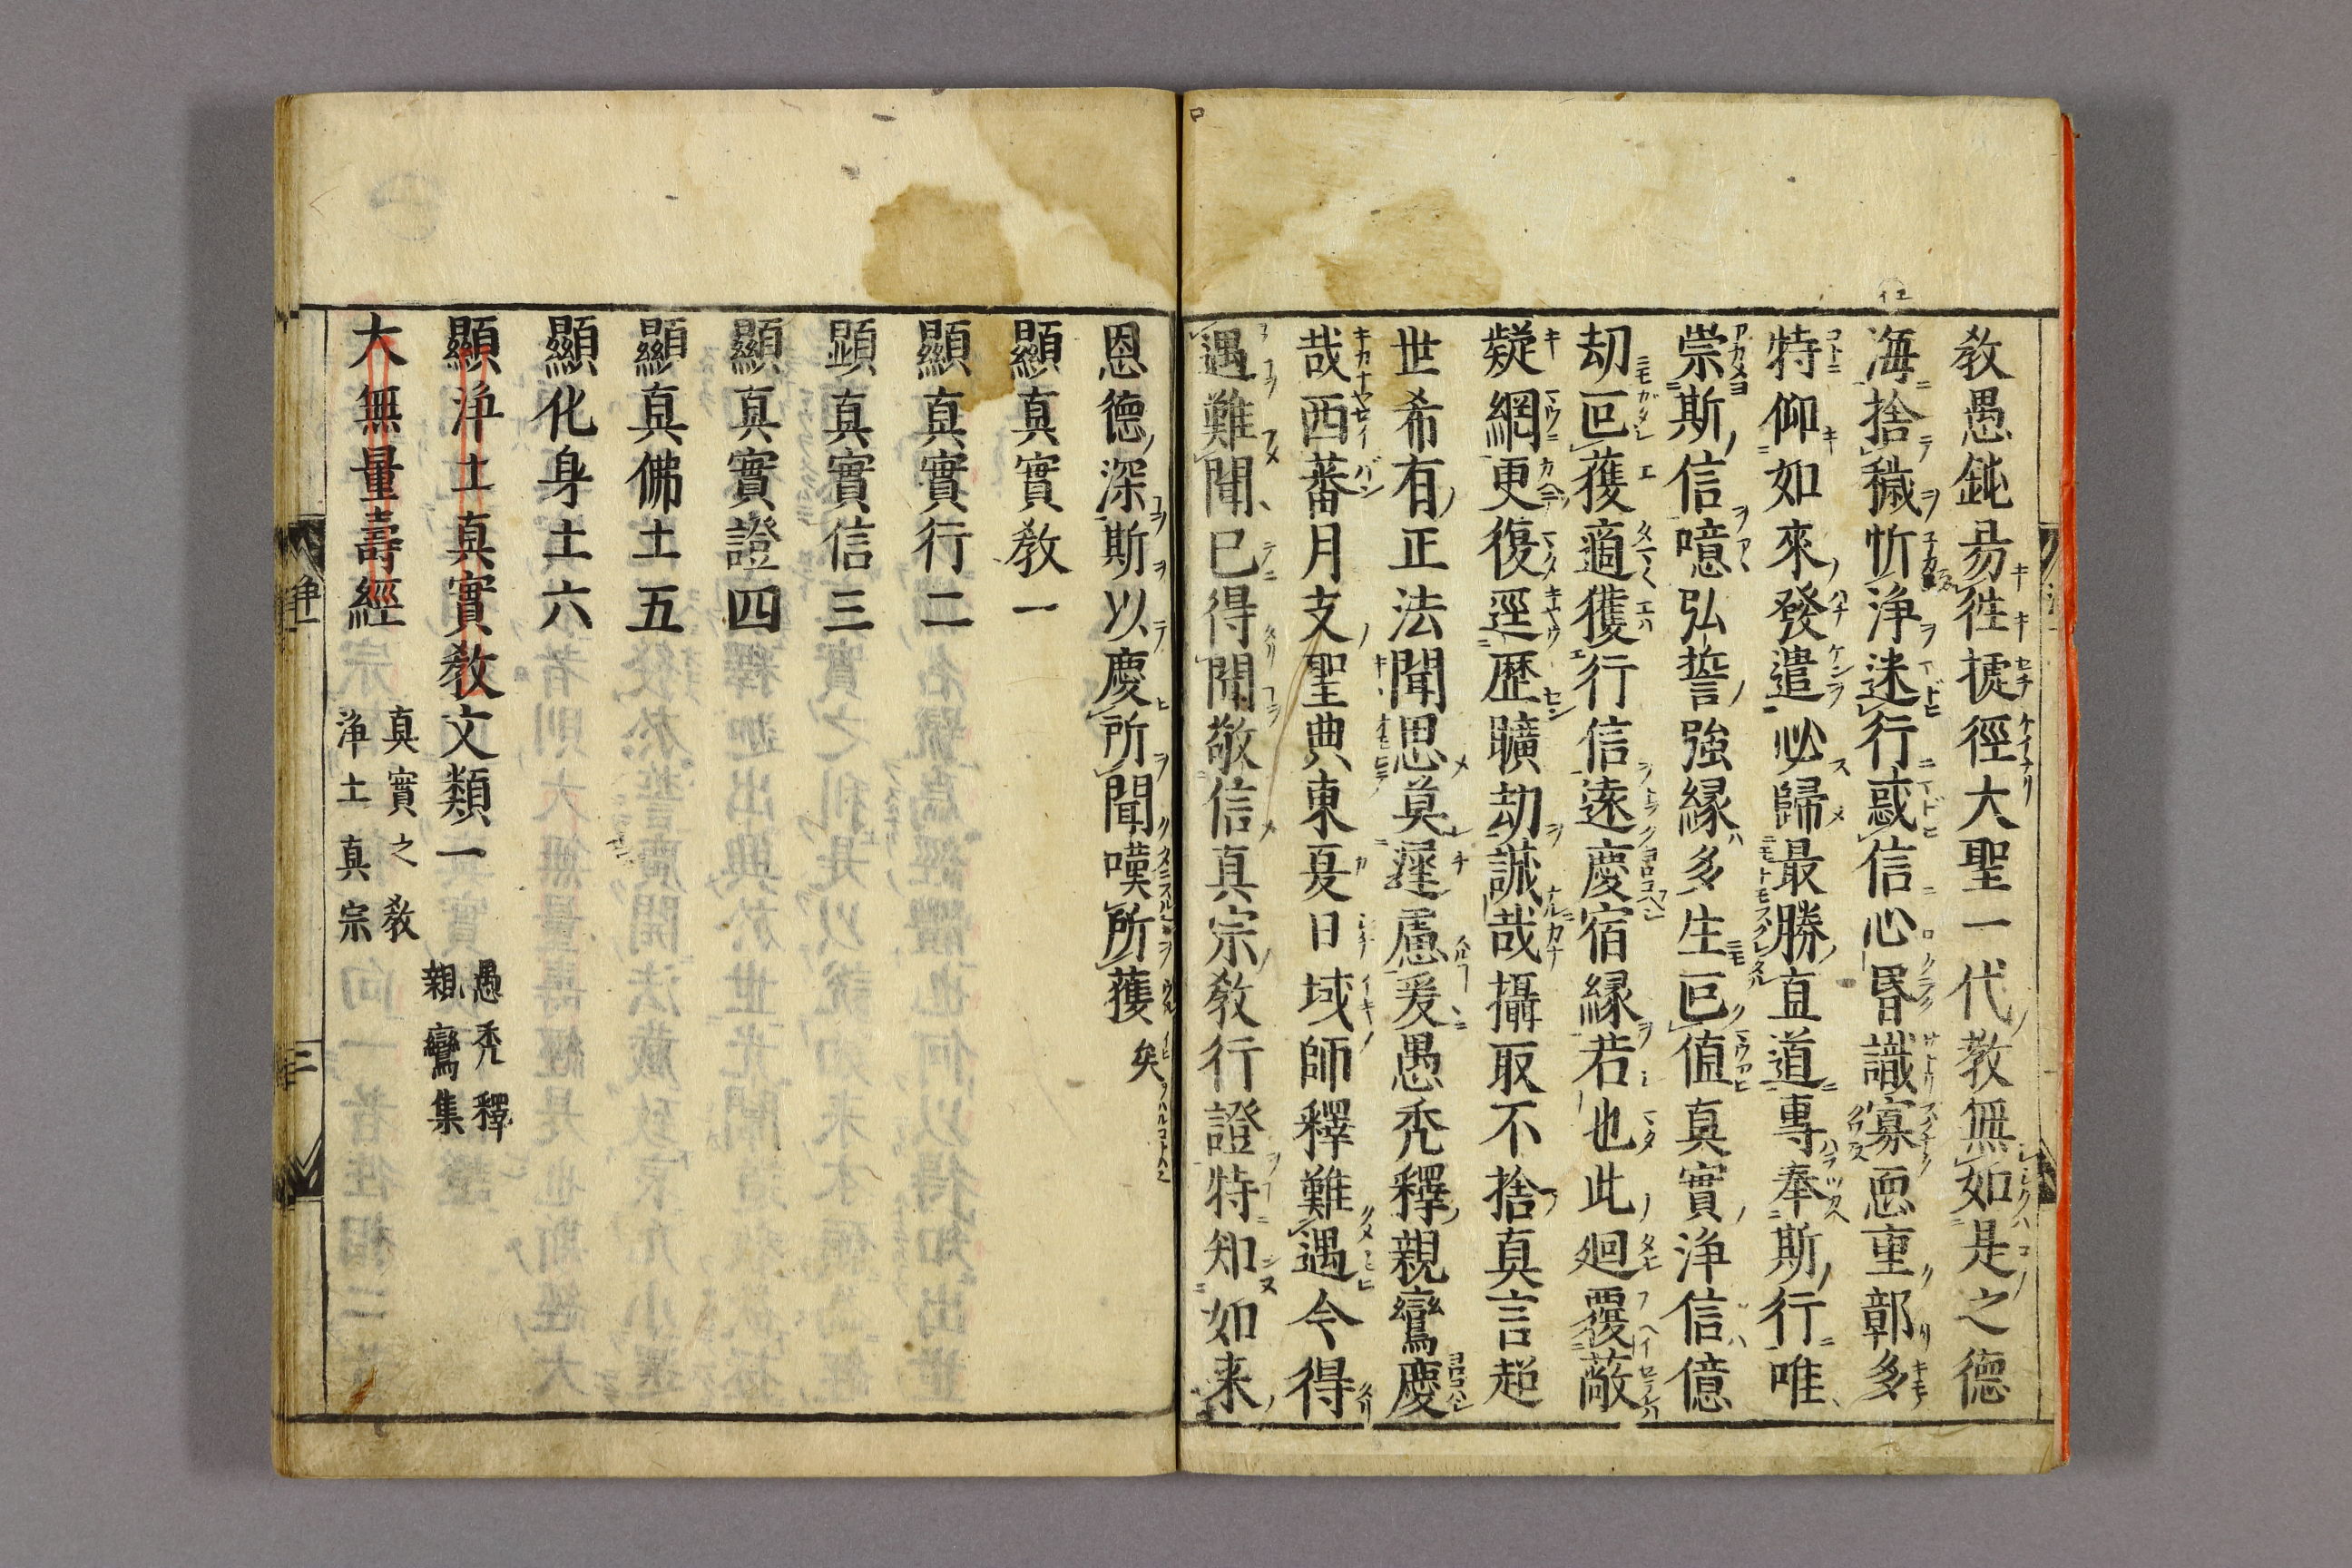 教愚鈍易徃捷徑大聖一代教無如是之德
海捨穢忻浄迷行惑信心昏識寡悪重鄣多
特仰如來發遣必歸最勝直道專奉斯行唯
崇斯信噫弘誓強縁多生叵值真實浄信億
劫叵獲適獲行信遠慶宿縁若也此廻覆蔽
疑網更復逕歷曠劫誠哉攝取不捨真言超
世希有正法聞思莫遲慮爰愚禿釋親鸞慶
哉西蕃月支聖典東夏日域師釋難遇今得
遇難聞已得聞敬信真宗教行證特知如来
恩德深斯以慶所聞嘆所獲矣
顯真實教一
顯真實行二
顕真實信三
顯真實證四
顯真佛土五
顯化身土六
顯浄土真實教文類一
愚禿釋
親鸞集
大無量壽經
真實之教
浄土真宗